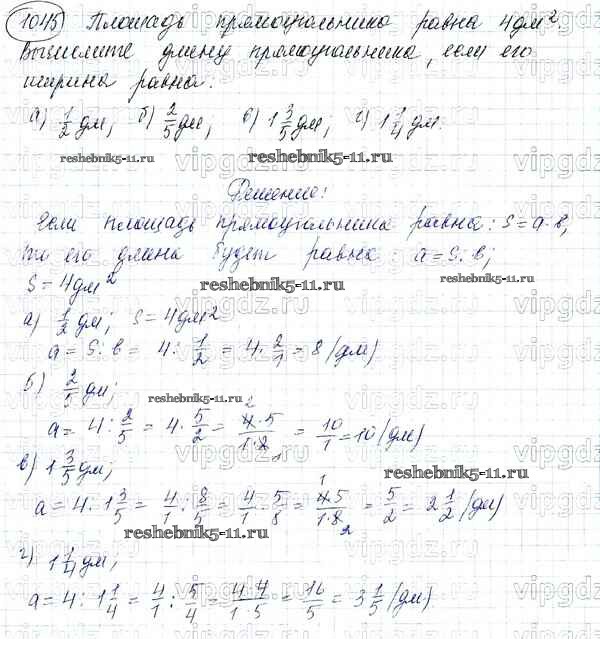 1045 Площадь прямоугольника равна 4 дм².
Вычислите длину прямоугольника, если его
ширина равна:
а) 1/2 дм; б) 2/5 дм; в) 1 3/5 дм; г) 1 1/4 дм.
reshebnik5-11.ru
reshebnik5-11.ru
vipgdz.ru
Решение:
Если площадь прямоугольника равна: S = a · b,
то его длина будет равна: a = S : b;
S = 4 дм²
reshebnik5-11.ru
а) 1/2 дм; S = 4 дм²
a = S : b = 4 : 1/2 = 4 · 2/1 = 8 (дм)
б) 2/5 дм;
reshebnik5-11.ru
a = 4 : 2/5 = 4 · 5/2 = 4·5/1·2 = 10/1 = 10 (дм)
в) 1 3/5 дм;
reshebnik5-11.ru
a = 4 : 1 3/5 = 4/1 : 8/5 = 4/1 · 5/8 = 4·5/1·8 = 5/2 = 2 1/2 (дм)
reshebnik5-11.ru
г) 1 1/4 дм;
a = 4 : 1 1/4 = 4/1 : 5/4 = 4·4/1·5 = 16/5 = 3 1/5 (дм)